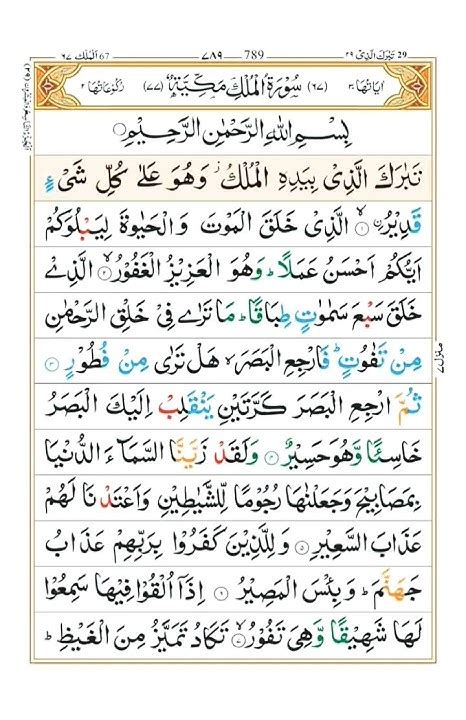 تبٰرك الذی ٢٩ 29 789 ٧٨٩ الملك ٦٧ 67
اٰيَاتُهَا ٣٠ (٦٧) سُوْرَةُ الْمُلْكِ مَكِّيَّةٌ (٧٧) رُكُوْعَاتُهَا ٢
بِسْمِ اللّٰهِ الرَّحْمٰنِ الرَّحِيْمِ
تَبٰرَكَ الَّذِیْ بِيَدِهِ الْمُلْكُ ز وَهُوَ عَلٰى كُلِّ شَیْءٍ
قَدِيْرُ ۙ ١ الَّذِیْ خَلَقَ الْمَوْتَ وَ الْحَيٰوةَ لِيَبْلُوَكُمْ
اَيُّكُمْ اَحْسَنُ عَمَلًا ؕ وَهُوَ الْعَزِيْزُ الْغَفُوْرُ ۙ ٢ الَّذِیْ
خَلَقَ سَبْعَ سَمٰوٰتٍ طِبَاقًا ؕ مَا تَرٰى فِیْ خَلْقِ الرَّحْمٰنِ
مِنْ تَفٰوُتٍ ؕ فَارْجِعِ الْبَصَرَ ۙ هَلْ تَرٰى مِنْ فُطُوْرٍ ٣
ثُمَّ ارْجِعِ الْبَصَرَ كَرَّتَيْنِ يَنْقَلِبْ اِلَيْكَ الْبَصَرُ
خَاسِئًا وَّهُوَ حَسِيْرٌ ٤ وَلَقَدْ زَيَّنَّا السَّمَآءَ الدُّنْيَا
بِمَصَابِيْحَ وَجَعَلْنٰهَا رُجُوْمًا لِّلشَّيٰطِيْنِ وَاَعْتَدْنَا لَهُمْ
عَذَابَ السَّعِيْرِ ٥ وَلِلَّذِيْنَ كَفَرُوْا بِرَبِّهِمْ عَذَابُ
جَهَنَّمَ ؕ وَبِئْسَ الْمَصِيْرُ ٦ اِذَآ اُلْقُوْا فِيْهَا سَمِعُوْا
لَهَا شَهِيْقًا وَّهِیَ تَفُوْرُ ۙ ٧ تَكَادُ تَمَيَّزُ مِنَ الْغَيْظِ ؕ
منزل ٧